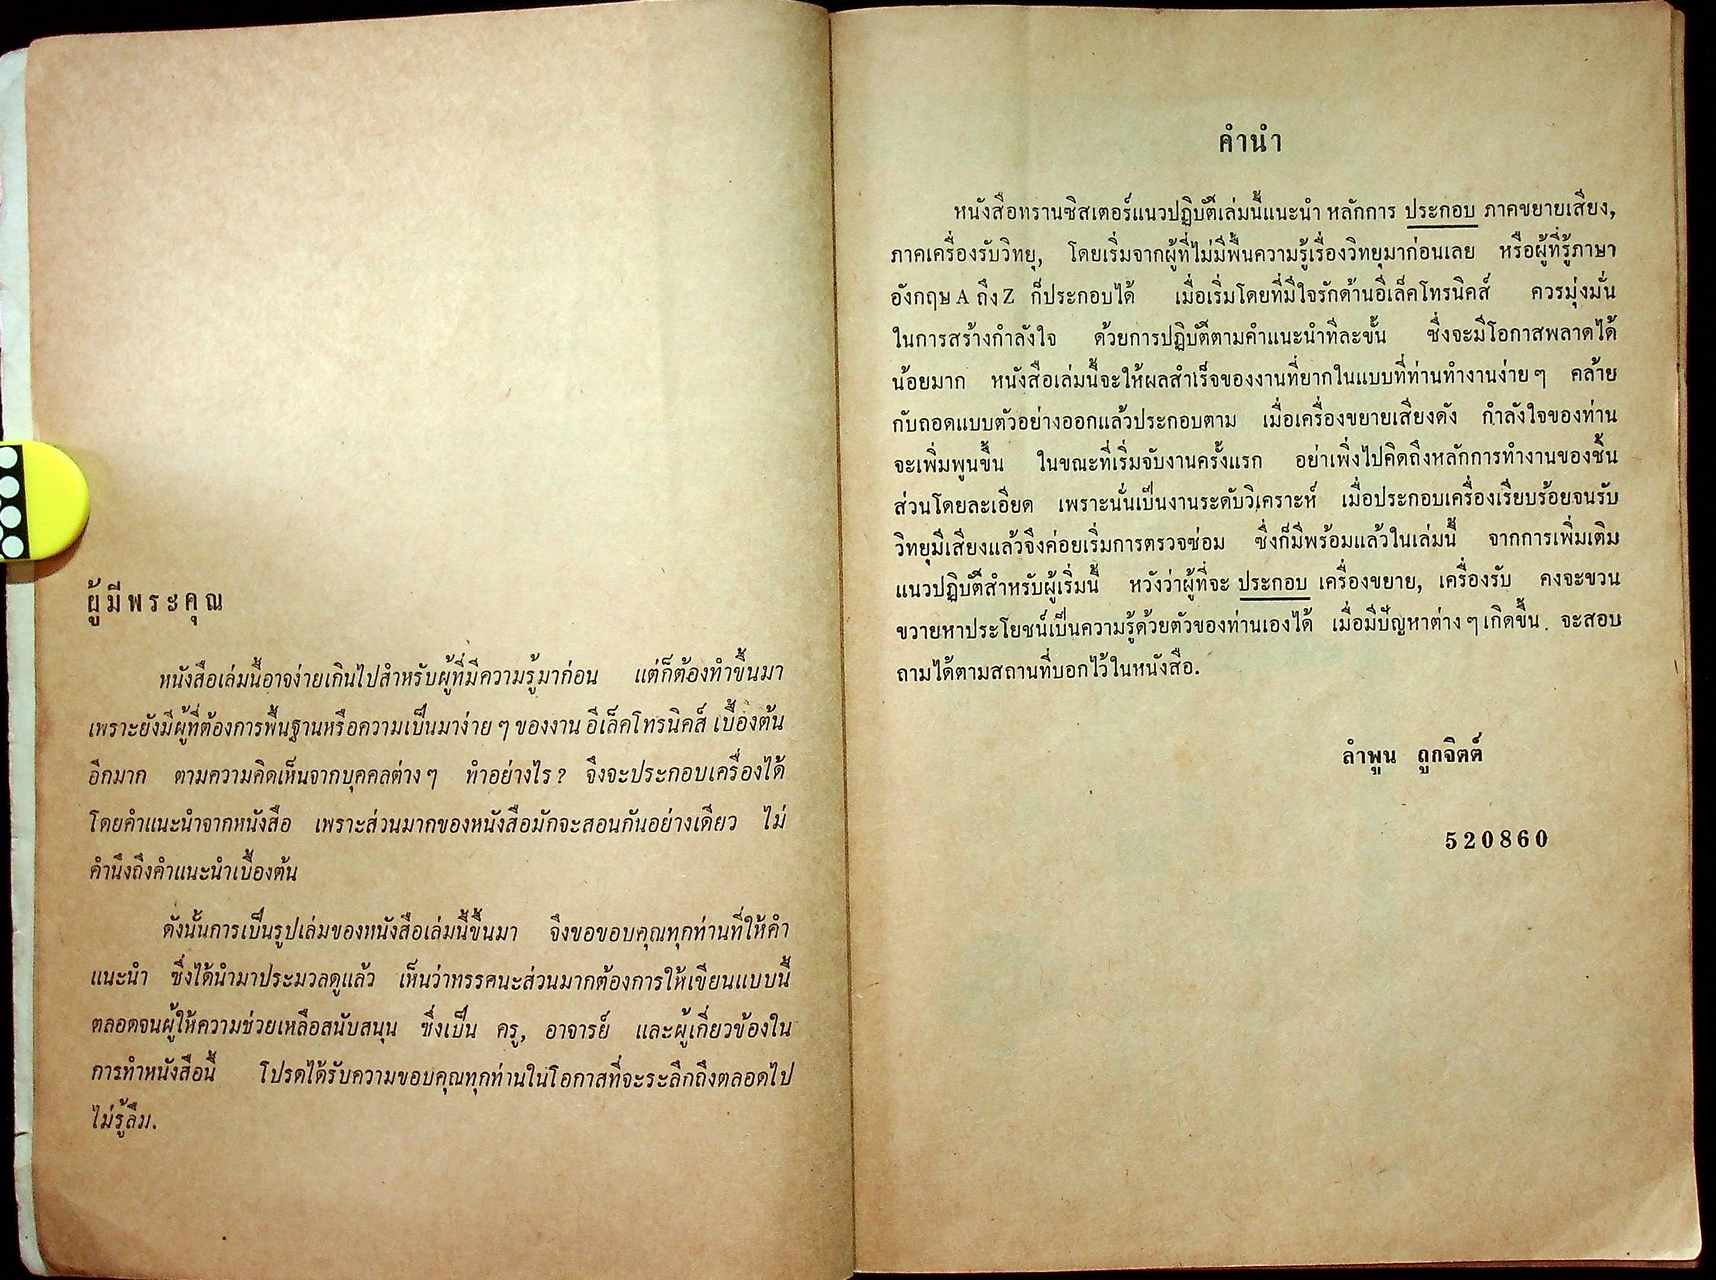 ผู้มีพระคุณ
หนังสือเล่มนี้อาจง่ายเกินไปสำหรับผู้ที่มีความรู้มาก่อน แต่ก็ต้องทำขึ้นมา
เพราะยังมีผู้ที่ต้องการพื้นฐานหรือความเป็นมาง่าย ๆ ของงาน อีเล็คโทรนิคส์ เบื้องต้น
อีกมาก ตามความคิดเห็นจากบุคคลต่าง ๆ ทำอย่างไร ? จึงจะประกอบเครื่องได้
โดยคำแนะนำจากหนังสือ เพราะส่วนมากของหนังสือมักจะสอนกันอย่างเดียว ไม่
คำนึงถึงคำแนะนำเบื้องต้น
ดังนั้นการเป็นรูปเล่มของหนังสือเล่มนี้ขึ้นมา จึงขอขอบคุณทุกท่านที่ให้คำ
แนะนำ ซึ่งได้นำมาประมวลดูแล้ว เห็นว่าทรรศนะส่วนมากต้องการให้เขียนแบบนี้
ตลอดจนผู้ให้ความช่วยเหลือสนับสนุน ซึ่งเป็น ครู, อาจารย์ และผู้เกี่ยวข้องใน
การทำหนังสือนี้ โปรดได้รับความขอบคุณทุกท่านในโอกาสที่จะระลึกถึงตลอดไป
ไม่รู้ลืม.
คำนำ
หนังสือทรานซิสเตอร์แนวปฏิบัติเล่มนี้แนะนำ หลักการ ประกอบ ภาคขยายเสียง,
ภาคเครื่องรับวิทยุ, โดยเริ่มจากผู้ที่ไม่มีพื้นความรู้เรื่องวิทยุมาก่อนเลย หรือผู้ที่รู้ภาษา
อังกฤษ A ถึง Z ก็ประกอบได้ เมื่อเริ่มโดยที่มีใจรักด้านอีเล็คโทรนิคส์ ควรมุ่งมั่น
ในการสร้างกำลังใจ ด้วยการปฏิบัติตามคำแนะนำทีละขั้น ซึ่งจะมีโอกาสพลาดได้
น้อยมาก หนังสือเล่มนี้จะให้ผลสำเร็จของงานที่ยากในแบบที่ท่านทำงานง่าย ๆ คล้าย
กับถอดแบบตัวอย่างออกแล้วประกอบตาม เมื่อเครื่องขยายเสียงดัง กำลังใจของท่าน
จะเพิ่มพูนขึ้น ในขณะที่เริ่มจับงานครั้งแรก อย่าเพิ่งไปคิดถึงหลักการทำงานของชิ้น
ส่วนโดยละเอียด เพราะนั่นเป็นงานระดับวิเคราะห์ เมื่อประกอบเครื่องเรียบร้อยจนรับ
วิทยุมีเสียงแล้วจึงค่อยเริ่มการตรวจซ่อม ซึ่งก็มีพร้อมแล้วในเล่มนี้ จากการเพิ่มเติม
แนวปฏิบัติสำหรับผู้เริ่มนี้ หวังว่าผู้ที่จะ ประกอบ เครื่องขยาย, เครื่องรับ คงจะขวน
ขวายหาประโยชน์เป็นความรู้ด้วยตัวของท่านเองได้ เมื่อมีปัญหาต่าง ๆ เกิดขึ้น . จะสอบ
ถามได้ตามสถานที่บอกไว้ในหนังสือ.
ลำพูน ถูกจิตต์
520860